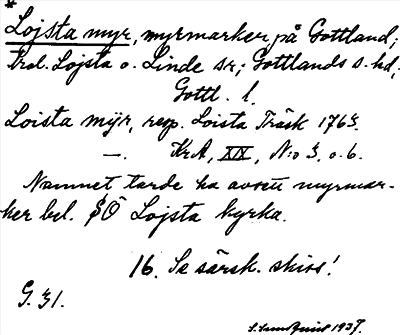 *
Lojsta myr, myrmarker på Gottland;
bel. Lojsta o. Linde sr; Gottlands s. hd,
Gottl. l.
Loista mÿr, resp. Loista Träsk 1763.
—. KrA, XIX, N:o 3, o. 6.
Namnet torde ha avsett myrmar-
ker bel. SÖ Lojsta kyrka.
16. Se särsk. skiss!
G. 31.
1937.